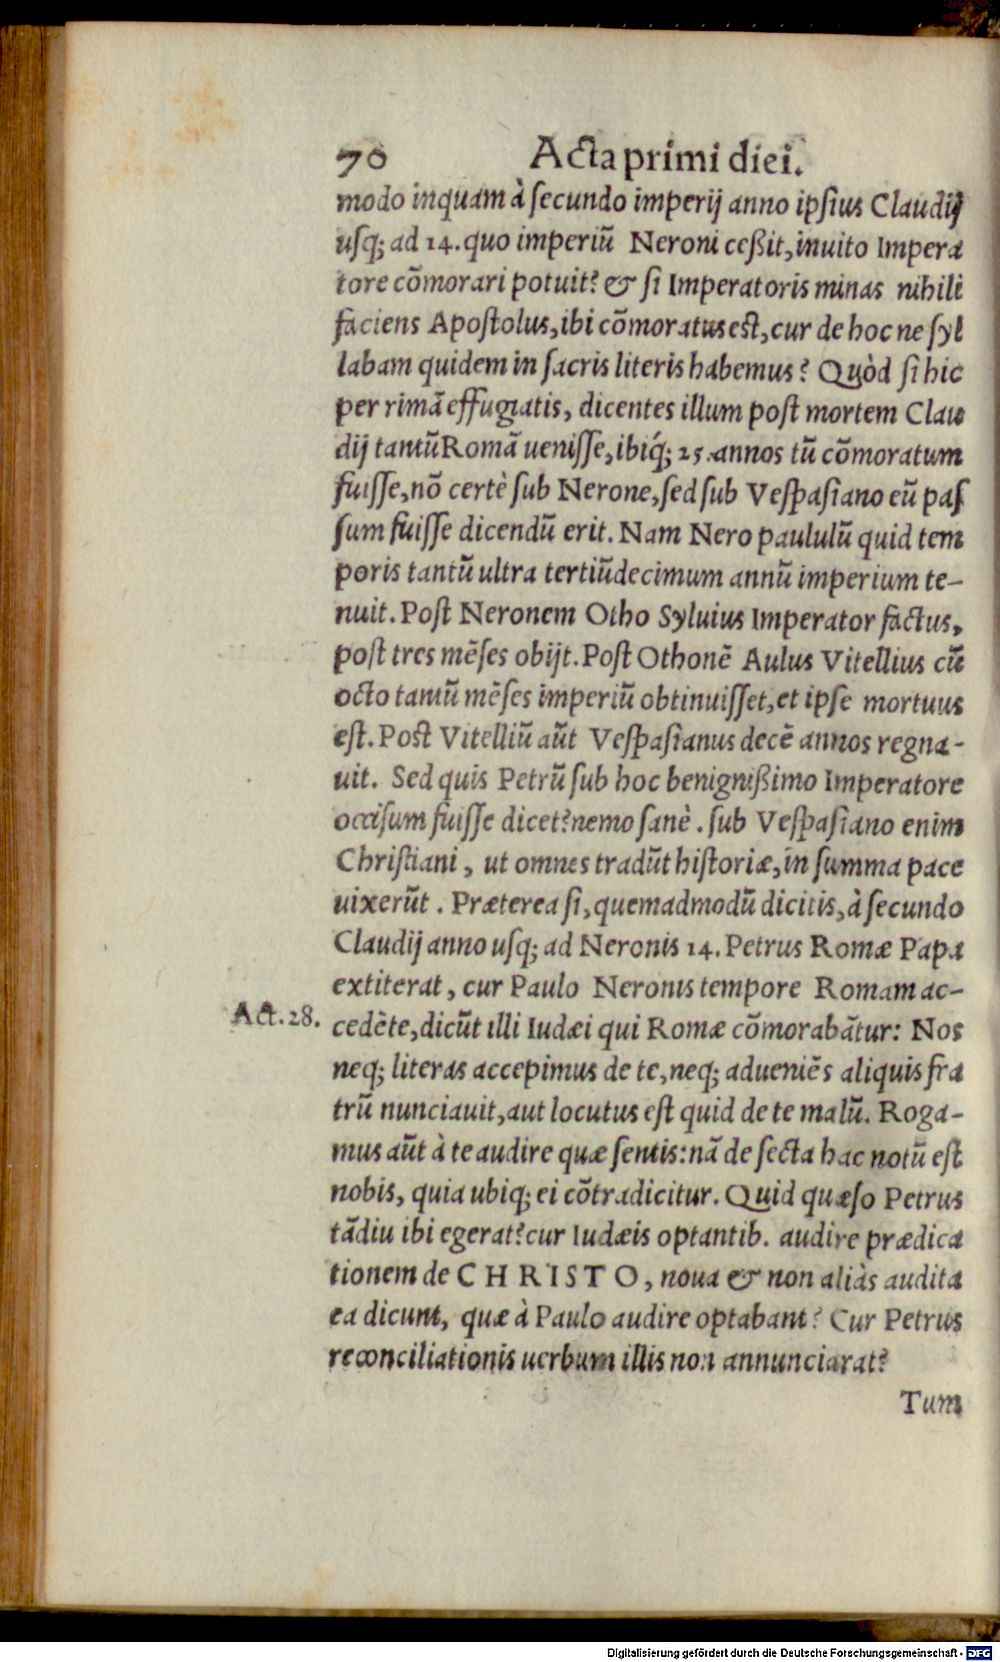 70 Acta primi diei.
modo inquam à ſecundo imperij anno ipſius Claudij
uſq; ad 14. quo imperiũ Neroni ceßit, inuito Impera
tore cõmorari potuit? & ſi Imperatoris minas nihili
faciens Apoſtolus, ibi cõmoratus eſt, cur de hoc ne ſyl
labam quidem in ſacris literis habemus? Quòd ſi hic
per rimã effugiatis, dicentes illum poſt mortem Clau
dij tantũ Romã ueniſſe, ibiq́; 25. annos tũ cõmoratum
fuiſſe, nõ certè ſub Nerone, ſed ſub Veſpaſiano eũ paſ
ſum fuiſſe dicendũ erit. Nam Nero paululũ quid tem
poris tantũ ultra tertiũdecimum annũ imperium te-
nuit. Poſt Neronem Otho Syluius Imperator factus,
poſt tres mẽſes obijt. Poſt Othonẽ Aulus Vitellius cũ
octo tantũ mẽſes imperiũ obtinuiſſet, et ipſe mortuus
eſt. Poſt Vitelliũ aũt Veſpaſianus decẽ annos regna-
uit. Sed quis Petrũ ſub hoc benignißimo Imperatore
occiſum fuiſſe dicet? nemo ſanè. ſub Veſpaſiano enim
Chriſtiani, ut omnes tradũt hiſtoriæ, in ſumma pace
uixerũt. Præterea ſi, quemadmodũ dicitis, à ſecundo
Claudij anno uſq; ad Neronis 14. Petrus Romæ Papa
extiterat, cur Paulo Neronis tempore Romam ac-
Act. 28.
cedẽte, dicũt illi Iudæi qui Romæ cõmorabãtur: Nos
neq; literas accepimus de te, neq; adueniẽs aliquis fra
trũ nunciauit, aut locutus eſt quid de te malũ. Roga-
mus aũt à te audire quæ ſentis: nã de ſecta hac notũ eſt
nobis, quia ubiq; ei cõtradicitur. Quid quæſo Petrus
tãdiu ibi egerat? cur Iudæis optantib. audire prædica
tionem de CHRISTO, noua & non aliàs audita
ea dicunt, quæ à Paulo audire optabant? Cur Petrus
reconciliationis uerbum illis non annunciarat?
Tum
Digitalisierung gefördert durch die Deutsche Forschungsgemeinschaft - DFG